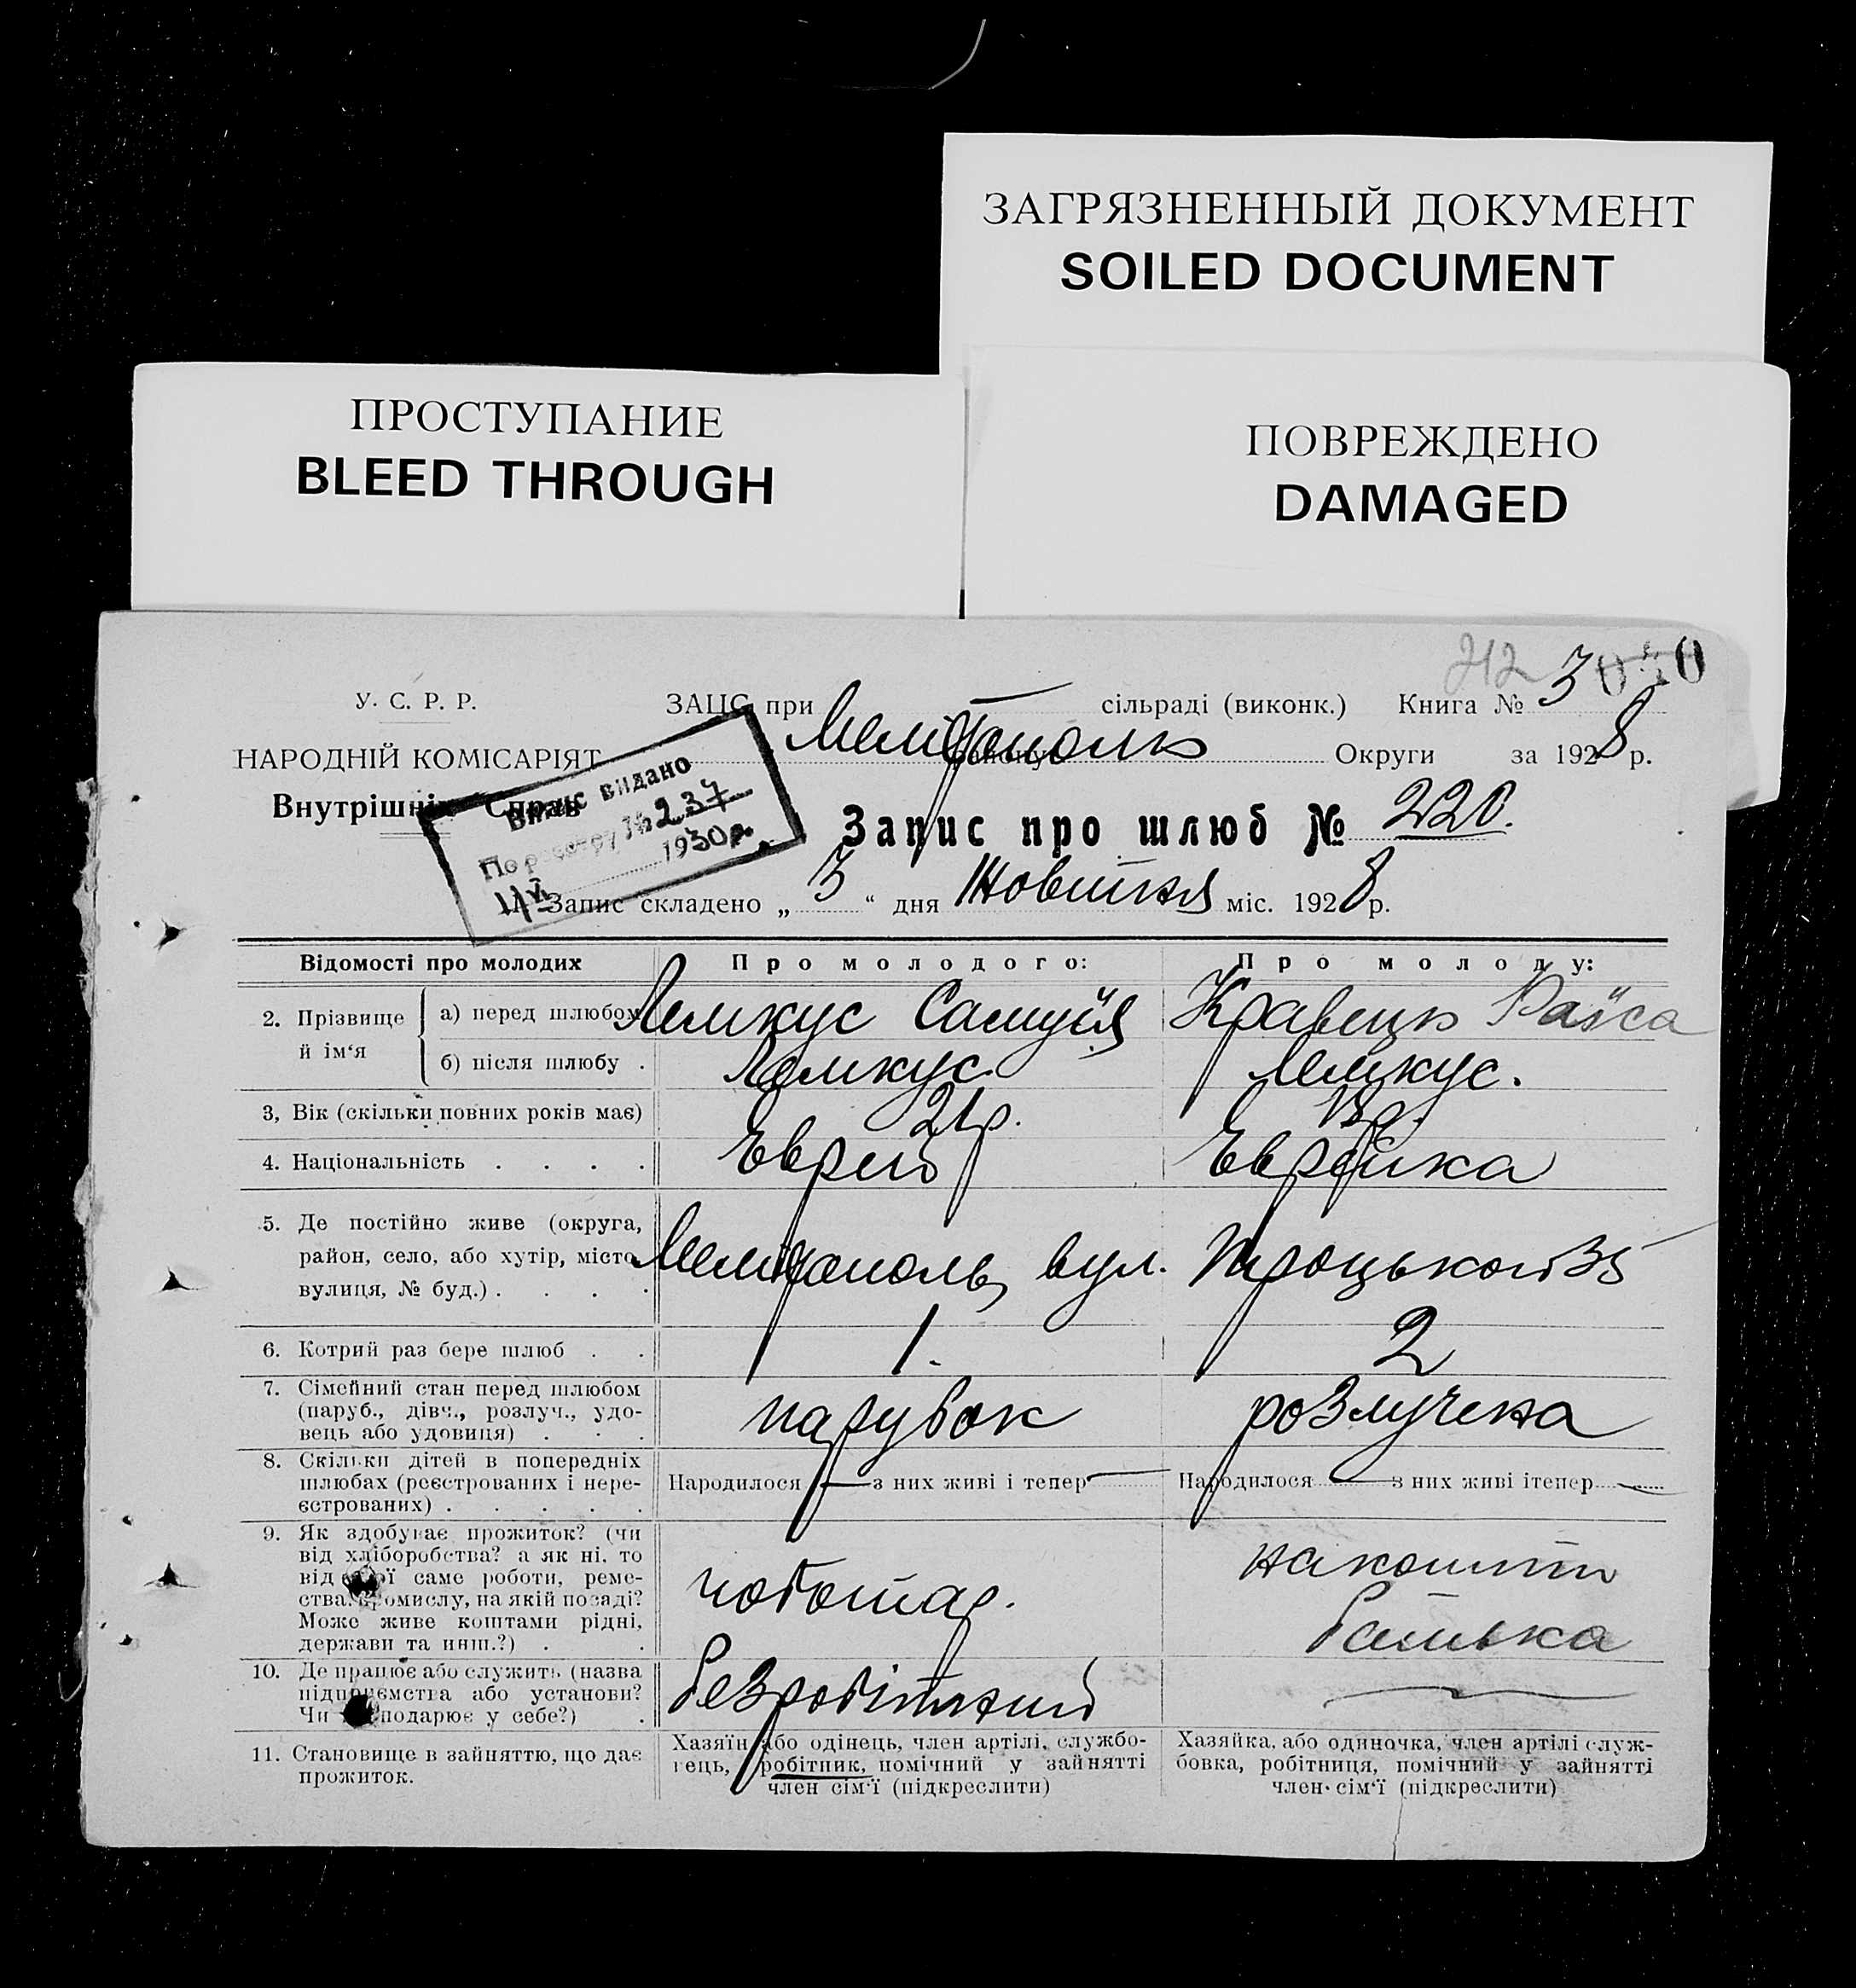 ЗАГРЯЗНЕННЫЙ ДОКУМЕНТ
SOILED DOCUMENT
ПРОСТУПАНИЕ
BLEED THROUGH
ПОВРЕЖДЕНО
DAMAGED
212
У. С. Р. Р.
НАРОДНІЙ КОМІСАРІЯТ
Внутрішніх Справ
ЗАЦС при Мелітополь сільраді (виконк.) Книга № 3
району Округи за 1928 р.
Виписс видано
По реєстру № 237
4/VI 1930 р.
Запис про шлюб № 220.
1. Запис складено „ 3 “ дня Жовтня міс. 1928 р.
Відомості про молодих Про молодого: Про молоду:
2. Прізвище й ім‘я
а) перед шлюбом Лемкус Самуїл Кравець Раїса
б) після шлюбу . Лемкус. Лемкус.
3, Вік (скільки повних років має) 21 р.
4. Національність . . . . Еврей Еврейка
5. Де постійно живе (округа,
район, село, або хутір, місто
вулиця, № буд.) . . . . Мелітополь, вул. Троцького 35
6. Котрий раз бере шлюб . . 1. 2
7. Сімейний стан перед шлюбом
(паруб., дівч., розлуч., удо-
вець або удовиця) . . . парубок розлучена
8. Скільки дітей в попередніх
шлюбах (реєстрованих і нере-
єстрованих) . . . . . Народилося — з них живі і тепер — Народилося — з них живі ітепер —
9. Як здобуває прожиток? (чи
від хліборобства? а як ні, то
від саме роботи, реме-
ства, промислу, на якій посаді?
Може живе коштами рідні,
держави та инш.?) . . чоботар. на кошти
батька
10. Де працює або служить (назва
підприємства або установи?
Чи господарює у себе?) . безробітний —
11. Становище в зайняттю, що дає
прожиток.
Хазяїн або одінець, член артілі, службо-
вець, робітник, помічний у зайнятті
член сім‘ї (підкреслити)
Хазяйка, або одиночка, член артілі служ-
бовка, робітниця, помічний у зайнятті
член сім‘ї (підкреслити)